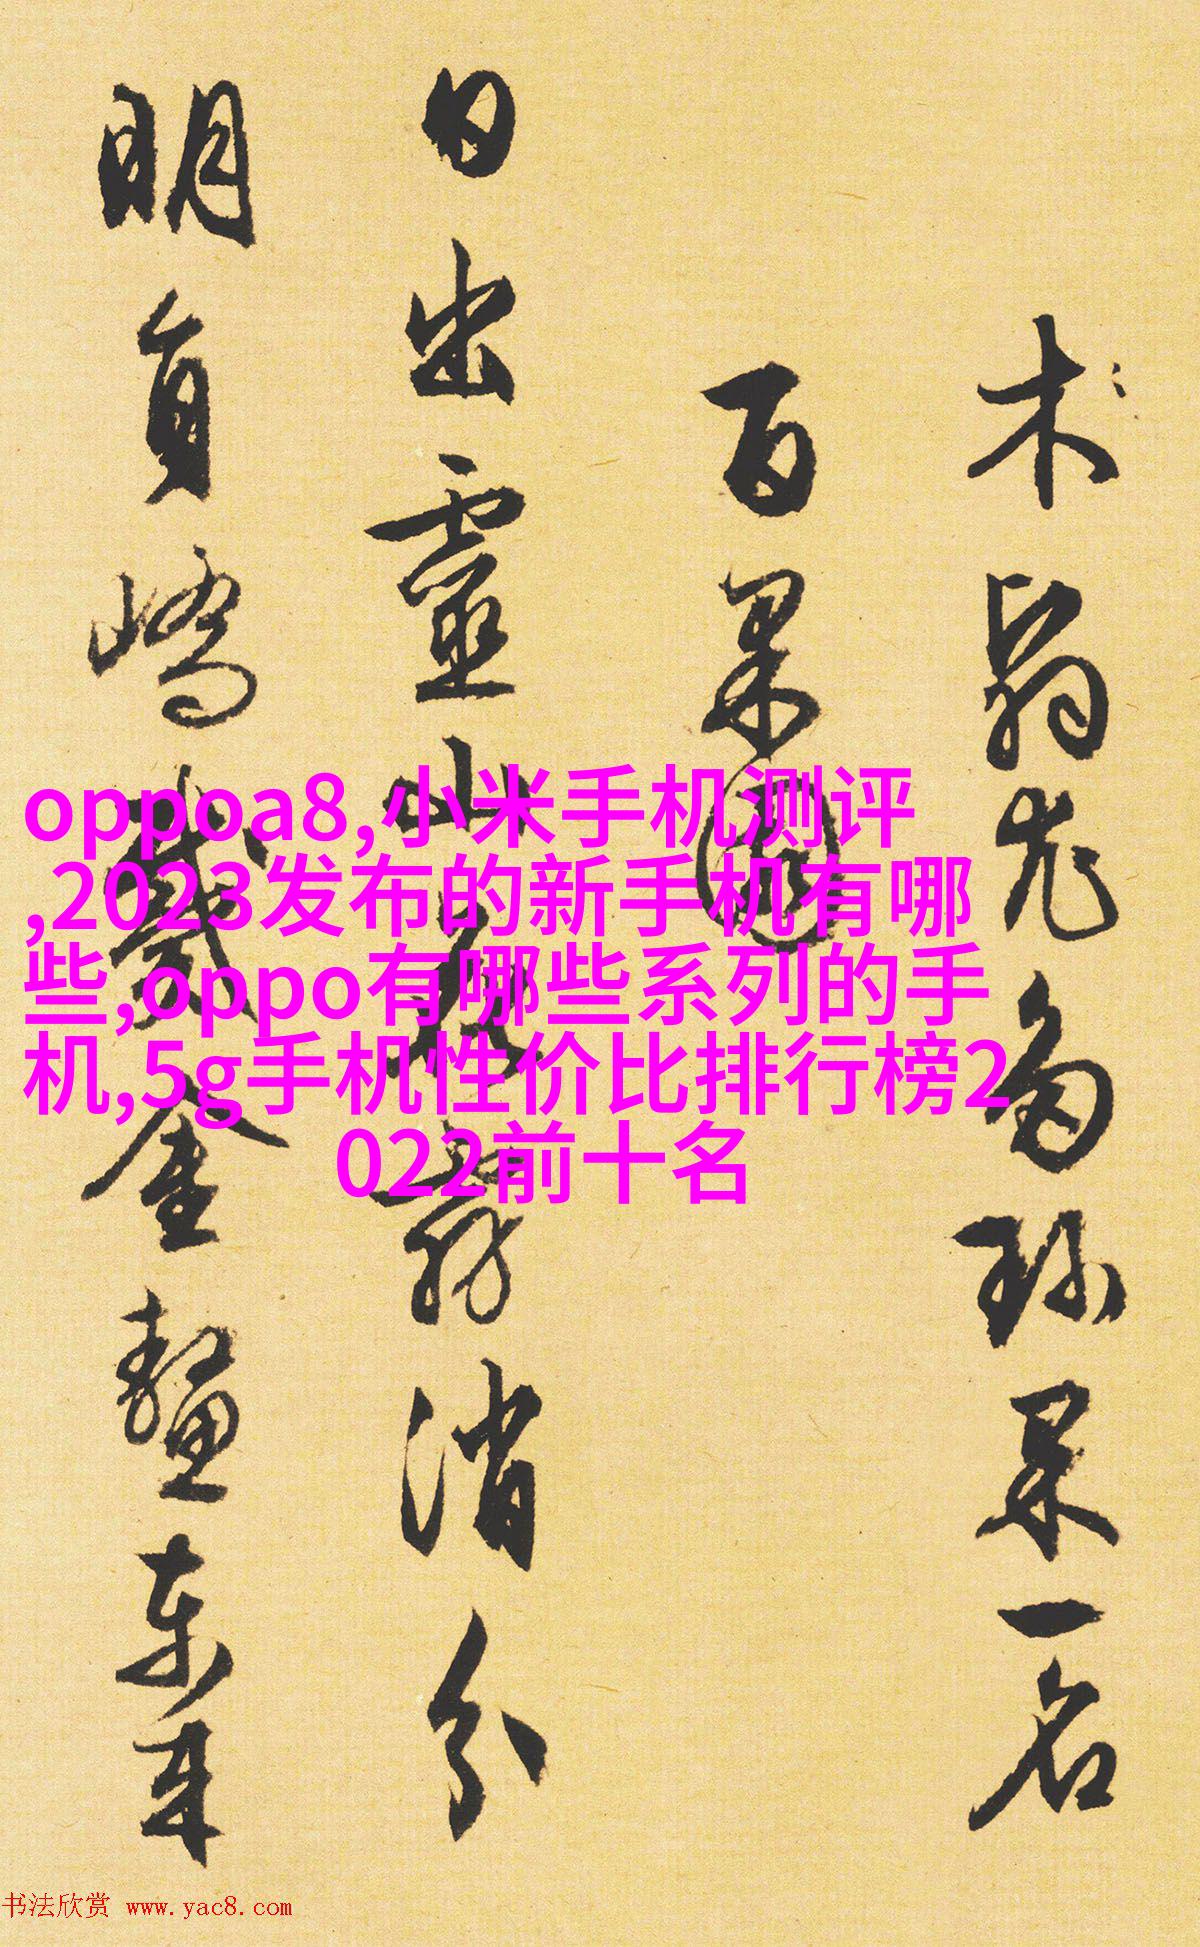 尤為珍果一名
百果
日出靈山花霧消分
明員嶠戴金鰲東來
oppoa8,小米手机测评
,2023发布的新手机有哪
些,oppo有哪些系列的手
机,5g手机性价比排行榜2
022前十名
书法欣赏 www.yac8.com